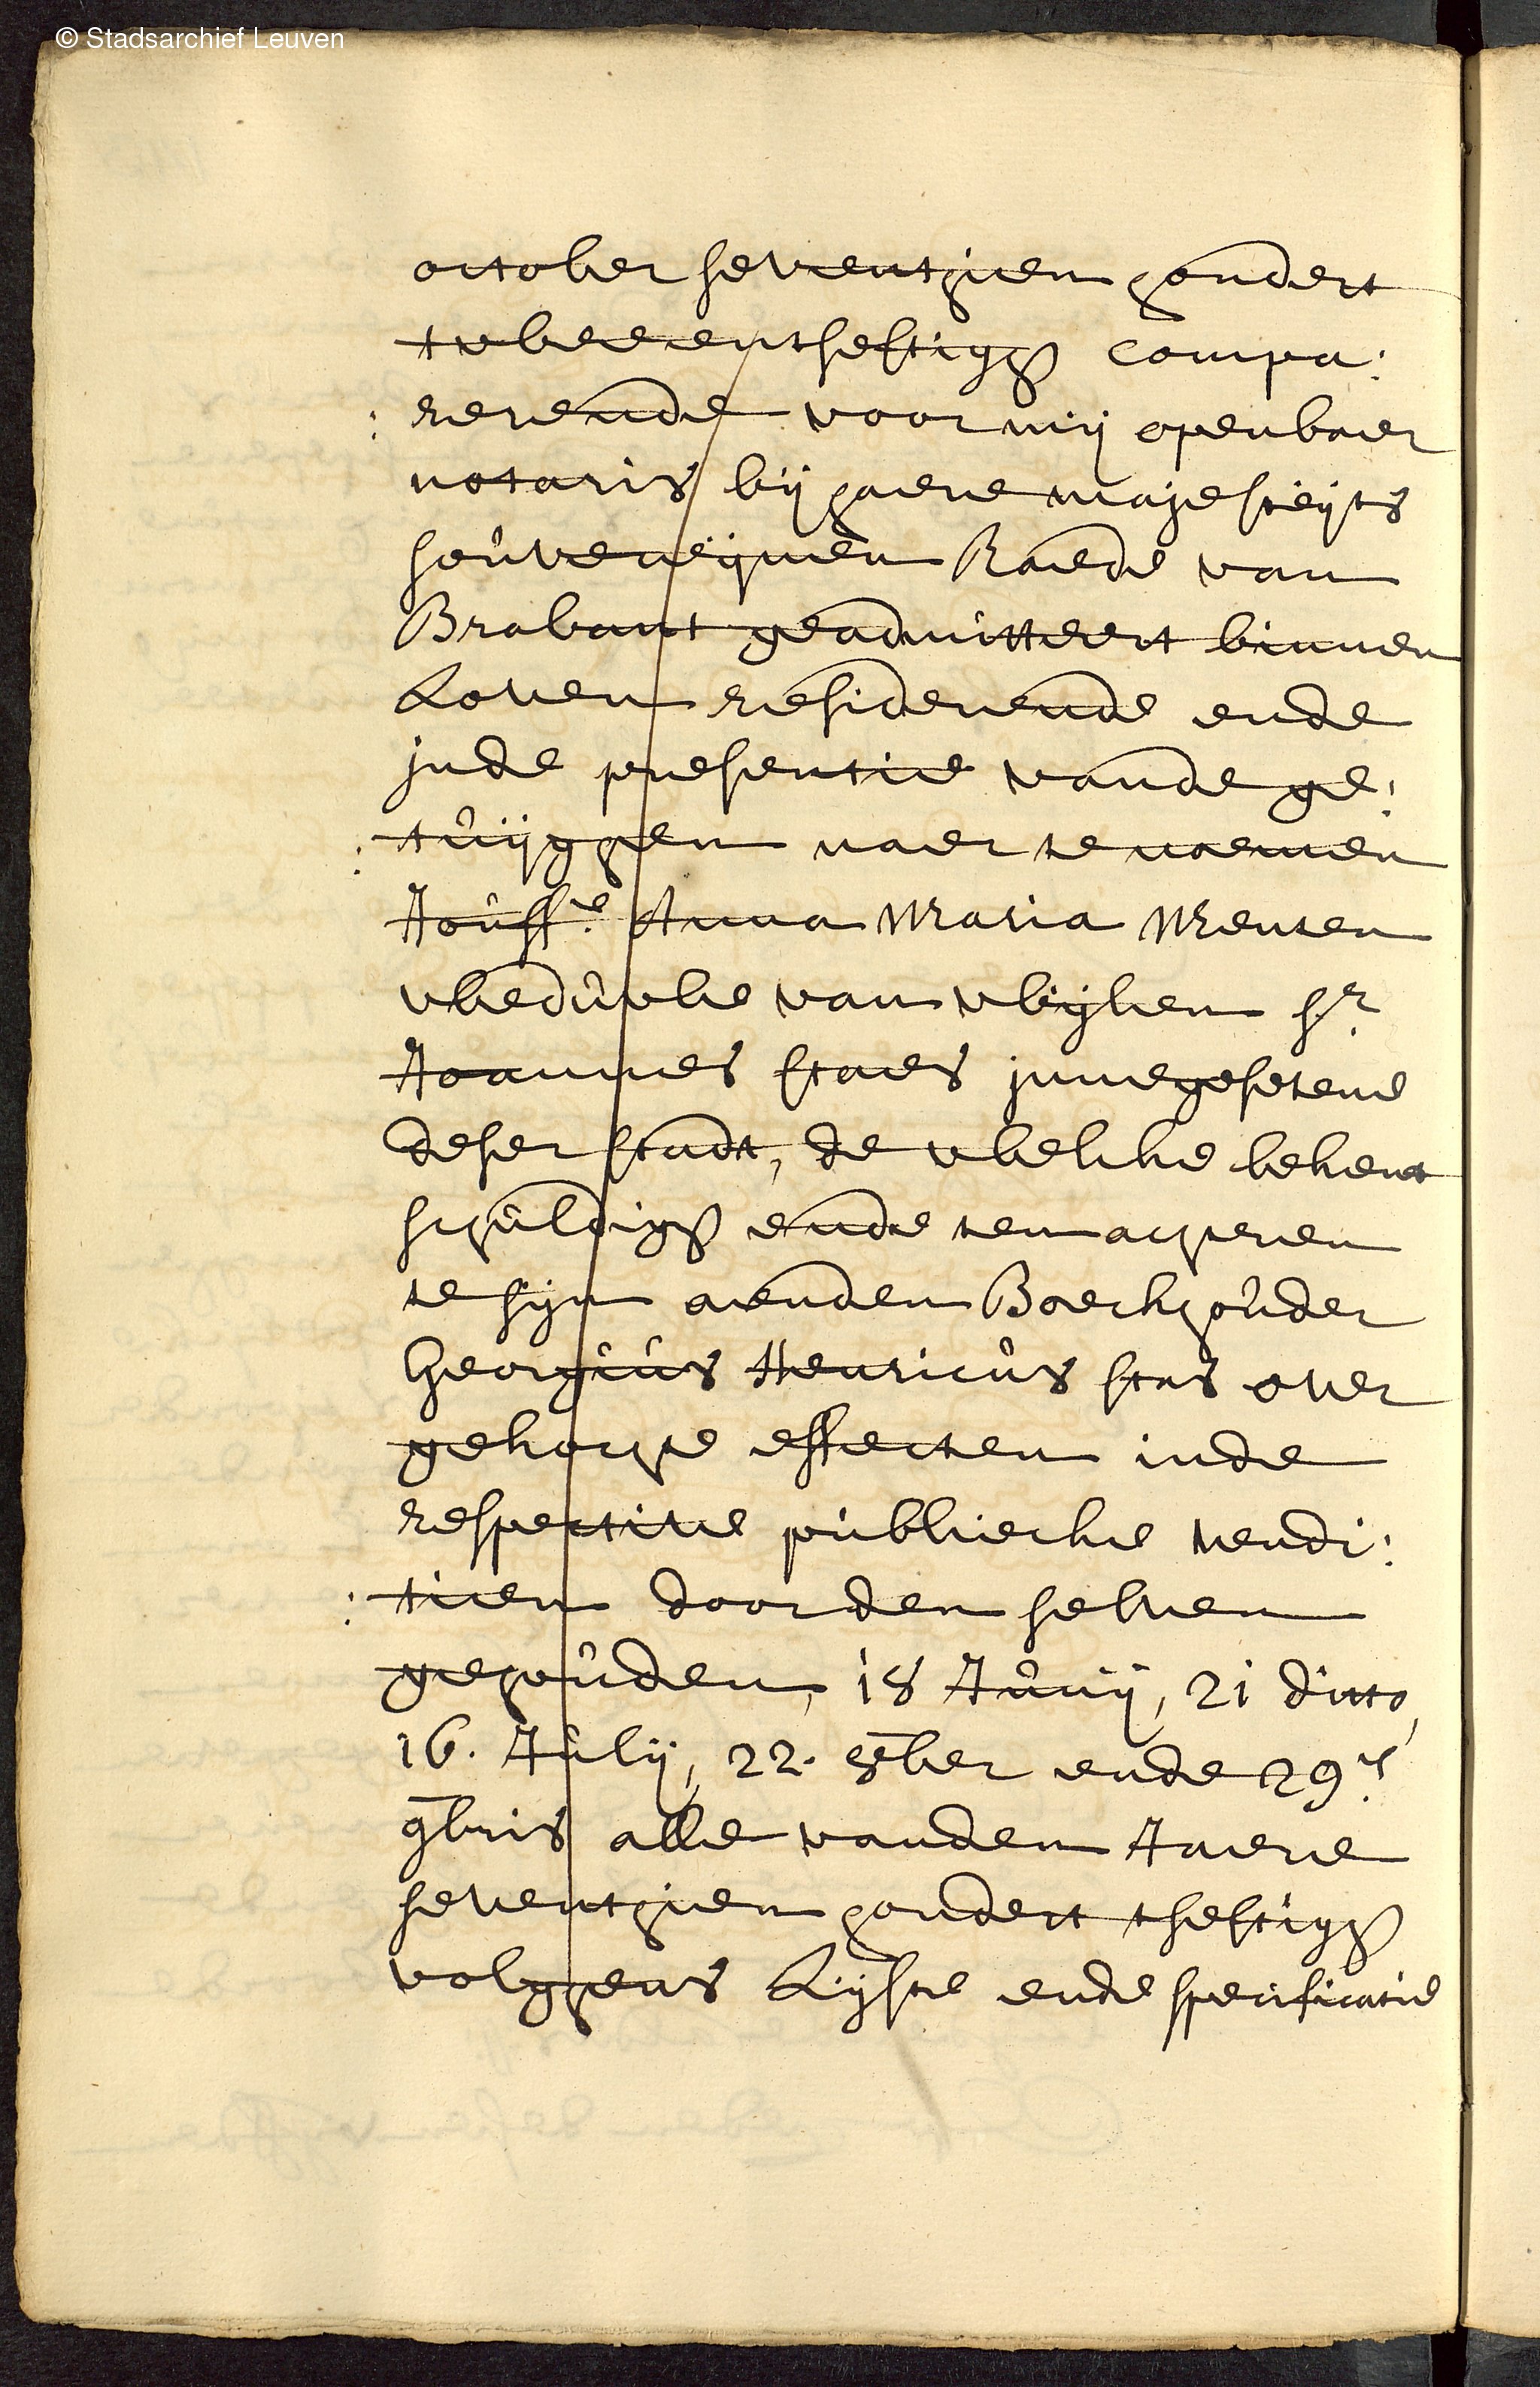 © Stadsarchief Leuven
october seventhien hondert
tweeentsestigh compa:
: rerende voor mij openbaer
notaris bij haere majesteyts
souvereijnen Raede van
Brabant geadmitteert binnen
Loven residerende ende
inde presentie vande ge:
: tuijghen naer te noemen
Jouffe. Anna Maria Menten
weduwe van wijlen sr.
Joannes Staes innegesetene
deser stadt, de welcke bekent
schuldigh ende ten acheren
te sijn aenden Boeckhouder
Georgius Henricus Stas over
gekochte effecten inde
respective publiecke vendi:
: tien door den selven
gehouden, 18 Junij, 21 ditto,
16. Julij, 22. 8ber ende 29e.
9bris alle vanden Jaere
seventhien hondert tsestigh
volghens Lijste ende specificatie